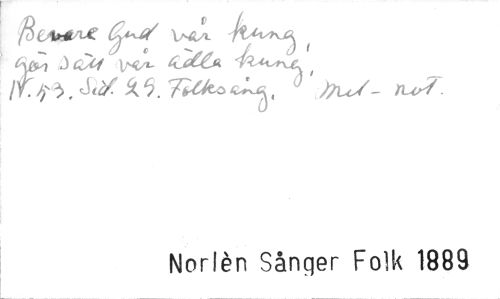 Bevare Gud vår kung,
gör säll vår ädla kung,
N. 53. Sid. 29. Folksång. Mel-not.
Norlèn Sånger Folk 1889